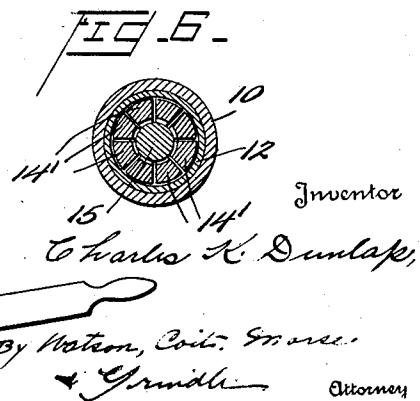 FIG. 6.
10
12
14'
15
14'
Inventor
Charles K. Dunlap,
By Watson, Coit, Morse
& Grindle
Attorney